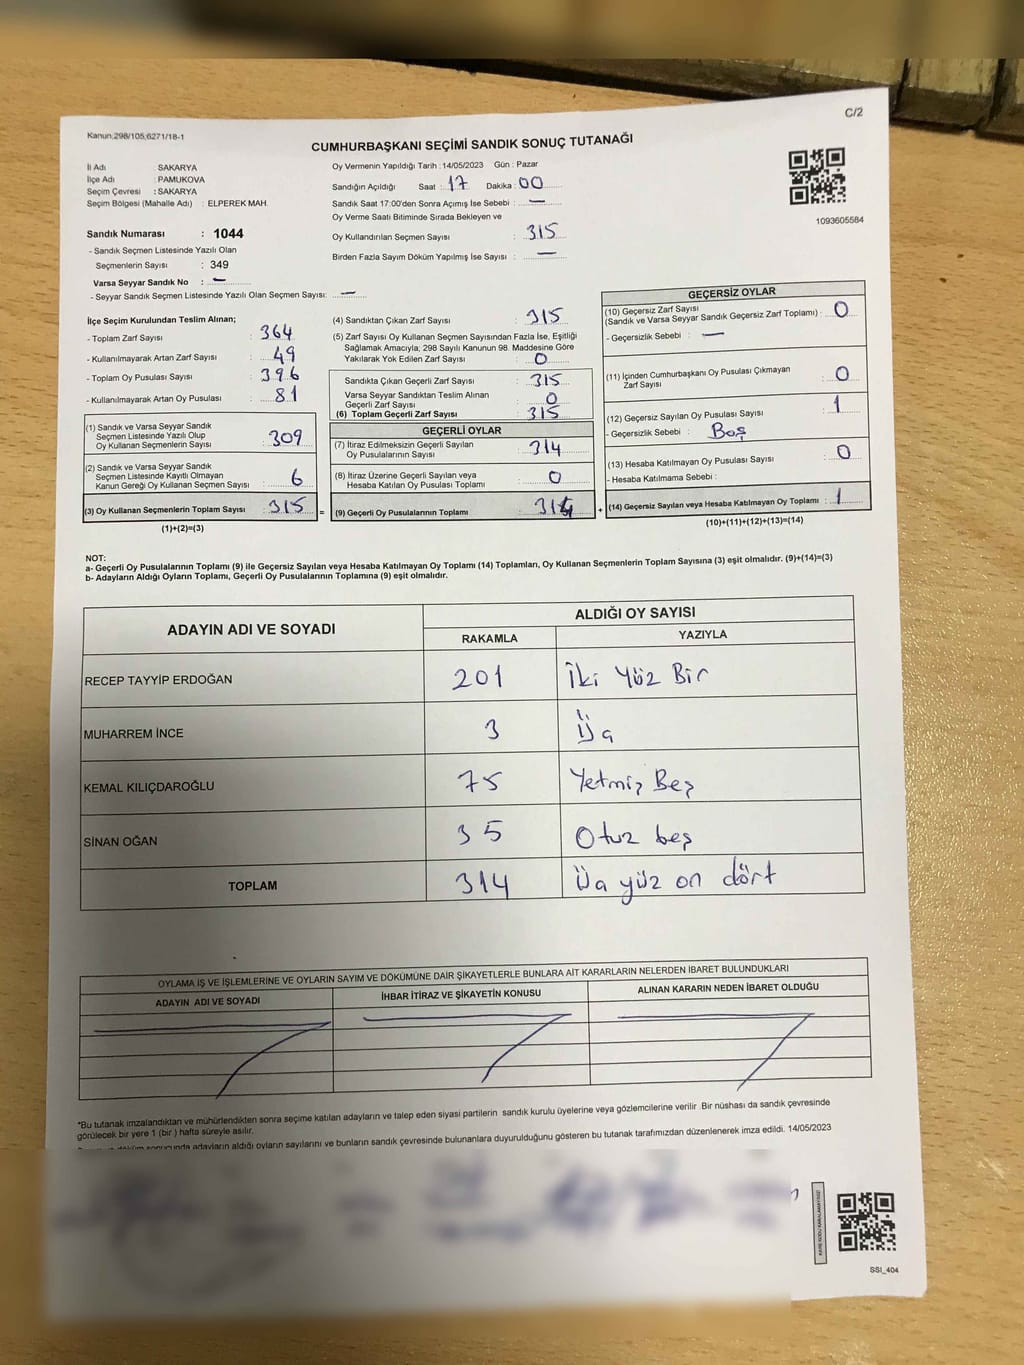 C/2
Kanun,298/105,6271/18-1
CUMHURBAŞKANI SEÇİMİ SANDIK SONUÇ TUTANAĞI
İl Adı SAKARYA
İlçe Adı : PAMUKOVA
Seçim Çevresi : SAKARYA
Seçim Bölgesi (Mahalle Adı) : ELPEREK MAH.
Sandık Numarası : 1044
- Sandık Seçmen Listesinde Yazılı Olan
Seçmenlerin Sayısı : 349
Varsa Seyyar Sandık No : —
- Seyyar Sandık Seçmen Listesinde Yazılı Olan Seçmen Sayısı: —
Oy Vermenin Yapıldığı Tarih : 14/05/2023 Gün : Pazar
Sandığın Açıldığı Saat : 17 Dakika : 00
Sandık Saat 17:00'den Sonra Açımış İse Sebebi : —
Oy Verme Saati Bitiminde Sırada Bekleyen ve
Oy Kullandırılan Seçmen Sayısı : 315
Birden Fazla Sayım Döküm Yapılmış İse Sayısı : —
1093605584
İlçe Seçim Kurulundan Teslim Alınan;
- Toplam Zarf Sayısı : 364
- Kullanılmayarak Artan Zarf Sayısı : 49
- Toplam Oy Pusulası Sayısı : 396
- Kullanılmayarak Artan Oy Pusulası : 81
(1) Sandık ve Varsa Seyyar Sandık
Seçmen Listesinde Yazılı Olup
Oy Kullanan Seçmenlerin Sayısı : 309
(2) Sandık ve Varsa Seyyar Sandık
Seçmen Listesinde Kayıtlı Olmayan
Kanun Gereği Oy Kullanan Seçmen Sayısı : 6
(3) Oy Kullanan Seçmenlerin Toplam Sayısı : 315 =
(1)+(2)=(3)
(4) Sandıktan Çıkan Zarf Sayısı : 315
(5) Zarf Sayısı Oy Kullanan Seçmen Sayısından Fazla İse, Eşitliği
Sağlamak Amacıyla; 298 Sayılı Kanunun 98. Maddesine Göre
Yakılarak Yok Edilen Zarf Sayısı : 0
Sandıkta Çıkan Geçerli Zarf Sayısı : 315
Varsa Seyyar Sandıktan Teslim Alınan
Geçerli Zarf Sayısı : 0
(6) Toplam Geçerli Zarf Sayısı : 315
GEÇERLİ OYLAR
(7) İtiraz Edilmeksizin Geçerli Sayılan
Oy Pusulalarının Sayısı : 314
(8) İtiraz Üzerine Geçerli Sayılan veya
Hesaba Katılan Oy Pusulası Toplamı : 0
(9) Geçerli Oy Pusulalarının Toplamı : 314 +
GEÇERSİZ OYLAR
(10) Geçersiz Zarf Sayısı
(Sandık ve Varsa Seyyar Sandık Geçersiz Zarf Toplamı) : 0
- Geçersizlik Sebebi : —
(11) İçinden Cumhurbaşkanı Oy Pusulası Çıkmayan
Zarf Sayısı : 0
(12) Geçersiz Sayılan Oy Pusulası Sayısı : 1
- Geçersizlik Sebebi : Boş
(13) Hesaba Katılmayan Oy Pusulası Sayısı : 0
- Hesaba Katılmama Sebebi :
(14) Geçersiz Sayılan veya Hesaba Katılmayan Oy Toplamı : 1
(10)+(11)+(12)+(13)=(14)
NOT:
a- Geçerli Oy Pusulalarının Toplamı (9) ile Geçersiz Sayılan veya Hesaba Katılmayan Oy Toplamı (14) Toplamları, Oy Kullanan Seçmenlerin Toplam Sayısına (3) eşit olmalıdır. (9)+(14)=(3)
b- Adayların Aldığı Oyların Toplamı, Geçerli Oy Pusulalarının Toplamına (9) eşit olmalıdır.
ADAYIN ADI VE SOYADI ALDIĞI OY SAYISI
RAKAMLA YAZIYLA
RECEP TAYYİP ERDOĞAN 201 İki Yüz Bir
MUHARREM İNCE 3 Üç
KEMAL KILIÇDAROĞLU 75 Yetmiş Beş
SİNAN OĞAN 35 Otuz beş
TOPLAM 314 Üç yüz on dört
OYLAMA İŞ VE İŞLEMLERİNE VE OYLARIN SAYIM VE DÖKÜMÜNE DAİR ŞİKAYETLERLE BUNLARA AİT KARARLARIN NELERDEN İBARET BULUNDUKLARI
ADAYIN ADI VE SOYADI İHBAR İTİRAZ VE ŞİKAYETİN KONUSU ALINAN KARARIN NEDEN İBARET OLDUĞU
*Bu tutanak imzalandıktan ve mühürlendikten sonra seçime katılan adayların ve talep eden siyasi partilerin sandık kurulu üyelerine veya gözlemcilerine verilir. Bir nüshası da sandık çevresinde
görülecek bir yere 1 (bir ) hafta süreyle asılır.
döküm sonucunda adayların aldığı oyların sayılarını ve bunların sandık çevresinde bulunanlara duyurulduğunu gösteren bu tutanak tarafımızdan düzenlenerek imza edildi. 14/05/2023
SSI_404